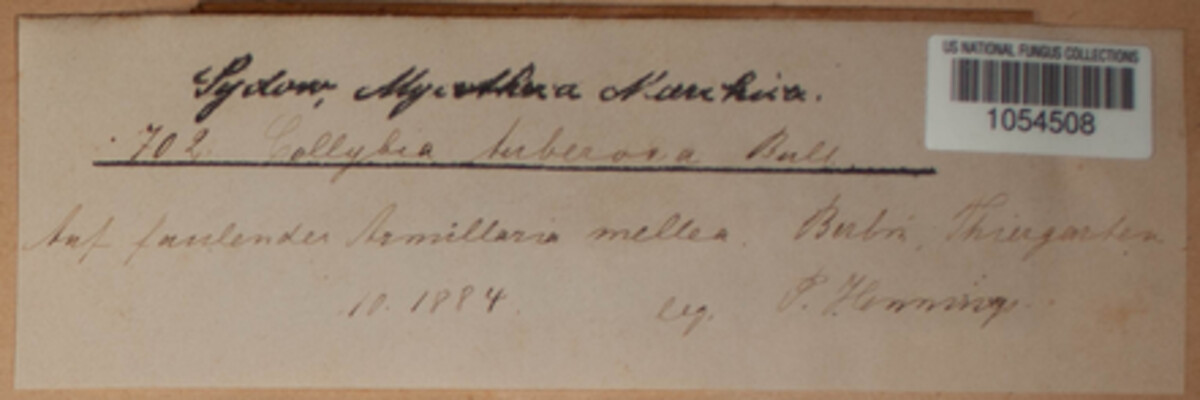 Sydow, Mycotheca Marchica.
702. Collybia tuberosa Bull.
Auf faulender Armillaria mellea. Berlin, Thiergarten.
10. 1884. leg. P. Hennings.
US NATIONAL FUNGUS COLLECTIONS
1054508